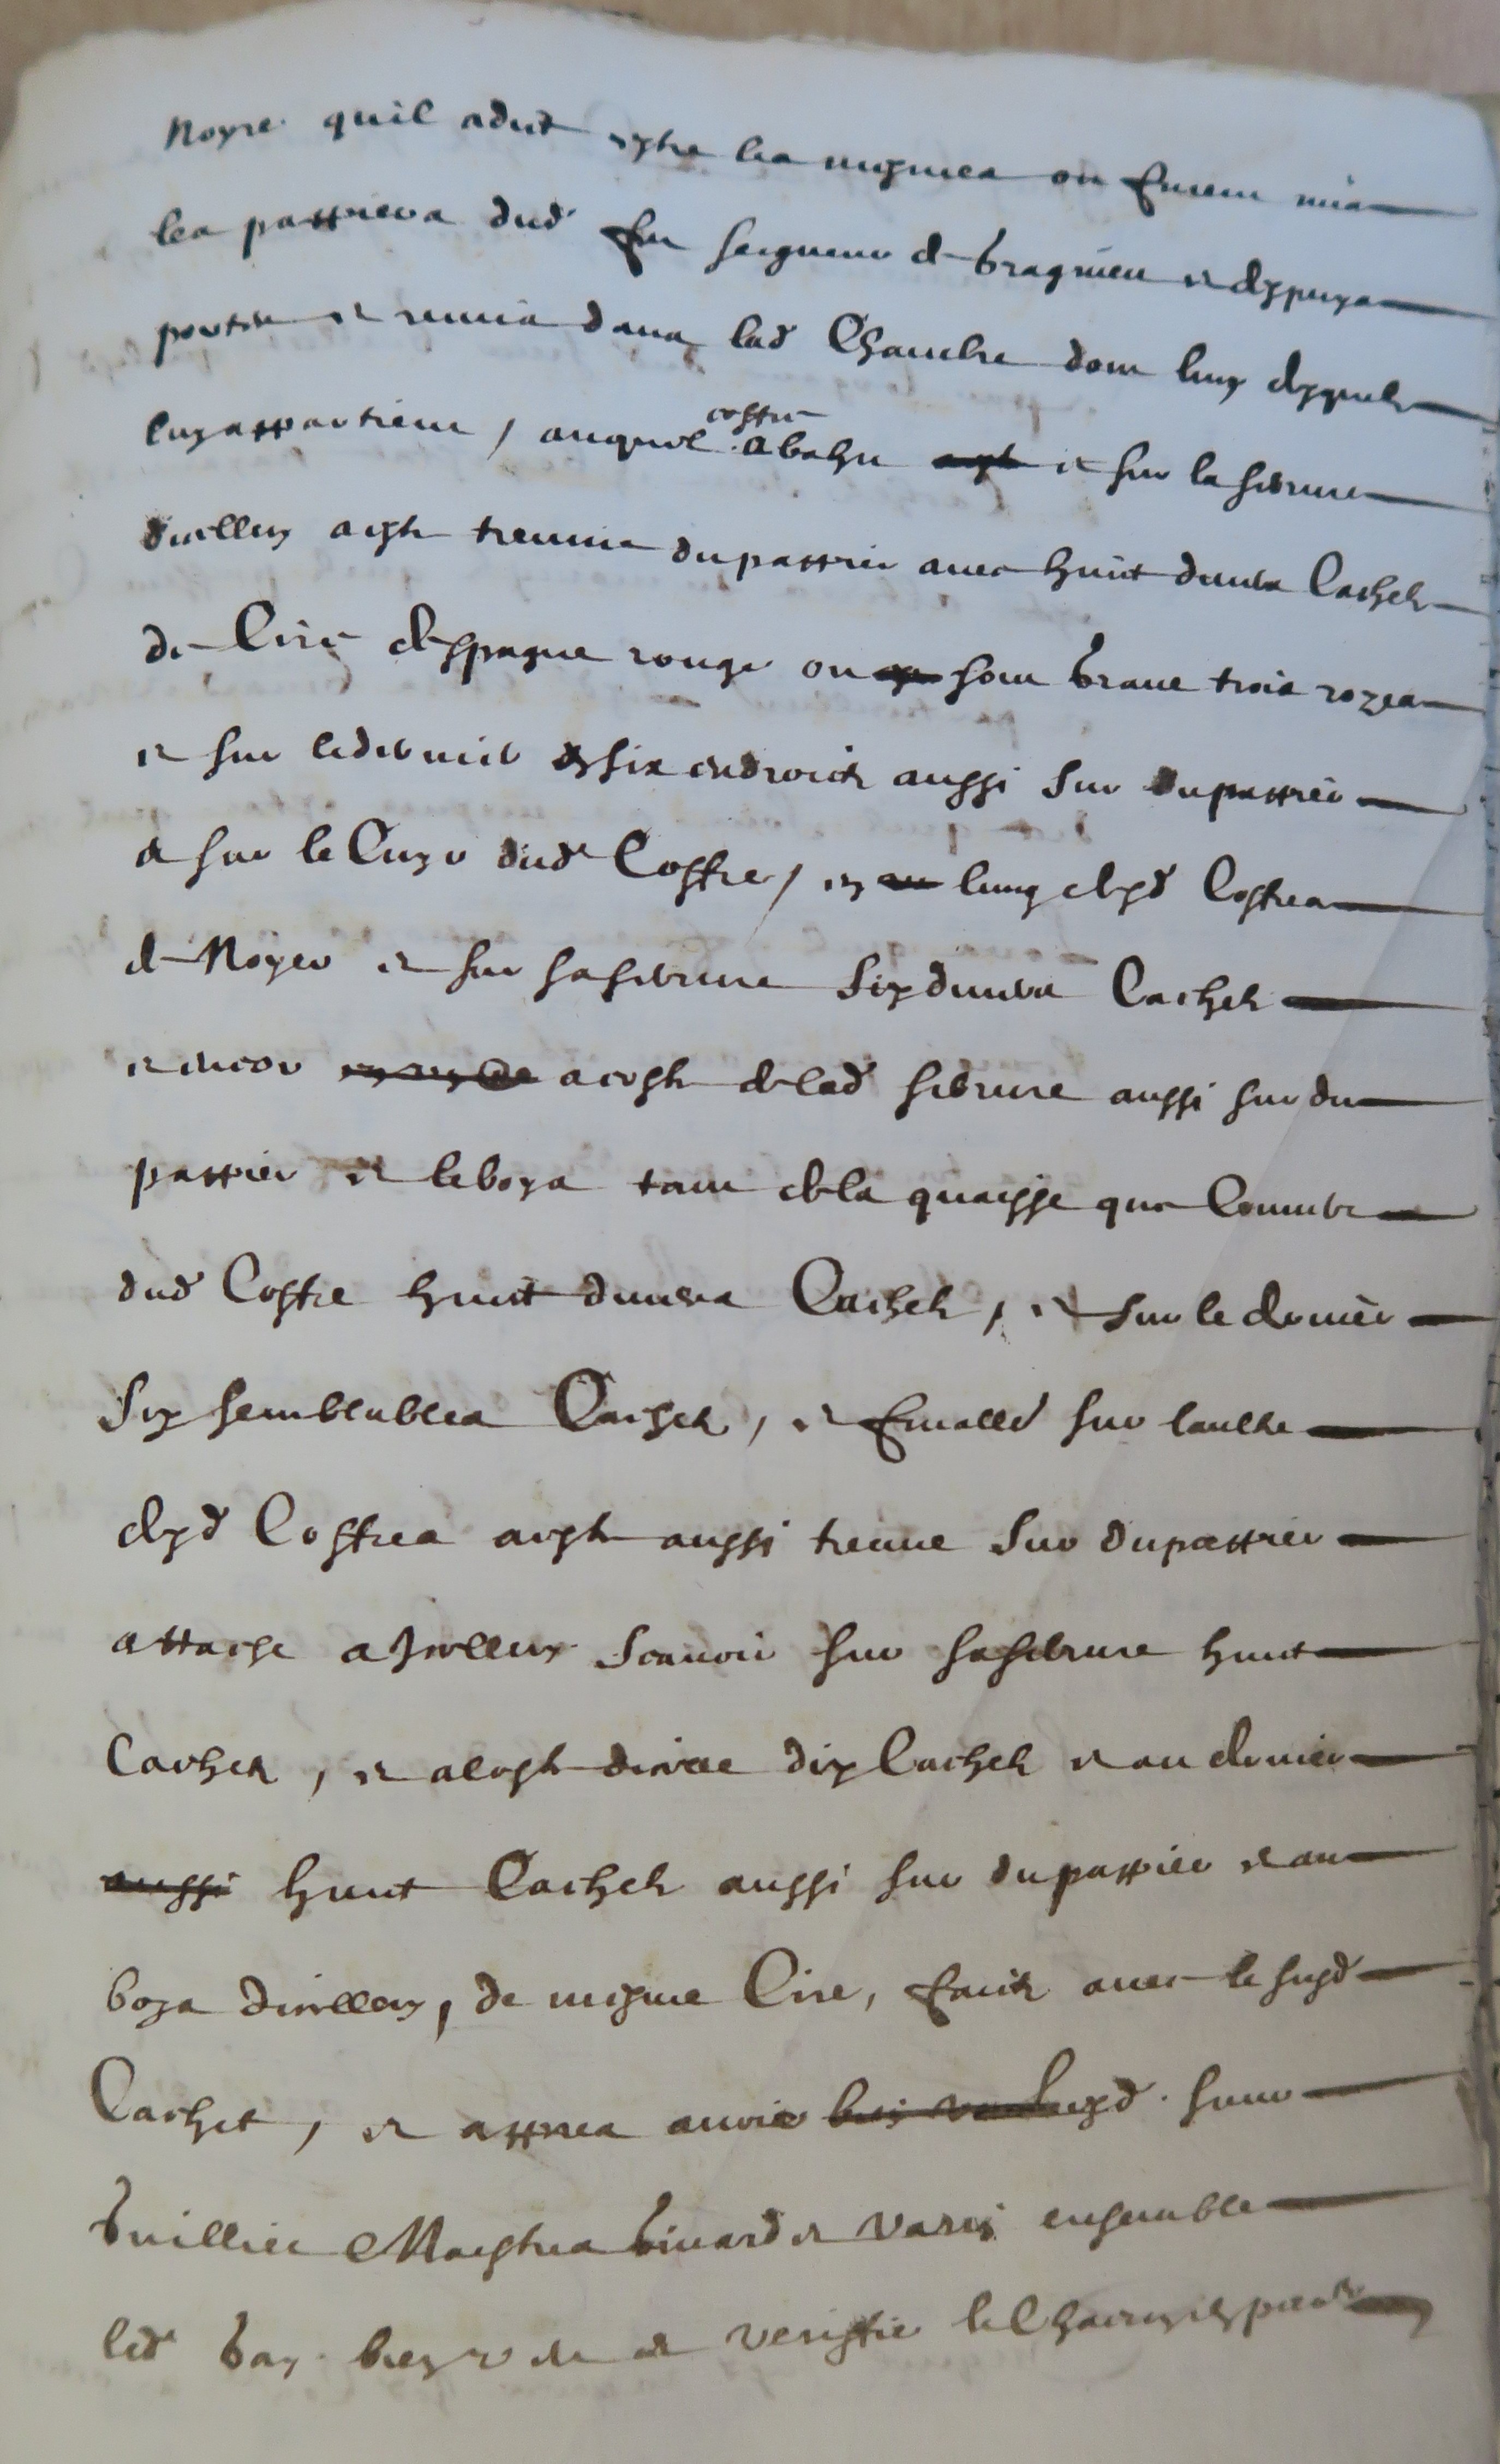 Noyre quil a dict estre les mesmes ou furent mis
les pappiers dud feu seigneur de bragnieu et depuys
portes et remis dans lad Chambre dont lung desquels
luy appartient / auquel coffre abahu et sur la serrure
dicelluy a esté treuvé du pappier avec huict divers Cachets
de Cire despagne rouge ou sont grave trois rozes
et sur le dernier de six endroicts aussi sur du pappier
et sur le Cuyr dud Coffre / en lung desd Coffres
de Noyer et sur sa serrure six divers Cachets
et encor a costé de lad serrure aussi sur du
pappier et le boys tant de la quaisse que Couvert
dud Coffre huict divers Cachets, et sur le dernier
six semblables Cachets, et finalled sur laultre
desd Coffres a esté aussi treuvé sur du pappier
attaché a Jcelluy scavoir sur sa serrure huict
Cachets, et a costé dicelle dix Cachets et au dernier
huict Cachets aussi sur du pappier et au
boys dicelluy, de mesme Cire, faicts avec le susd
Cachet, et appres avoir lesd sieur
Maistres et ensemble
led et veriffié